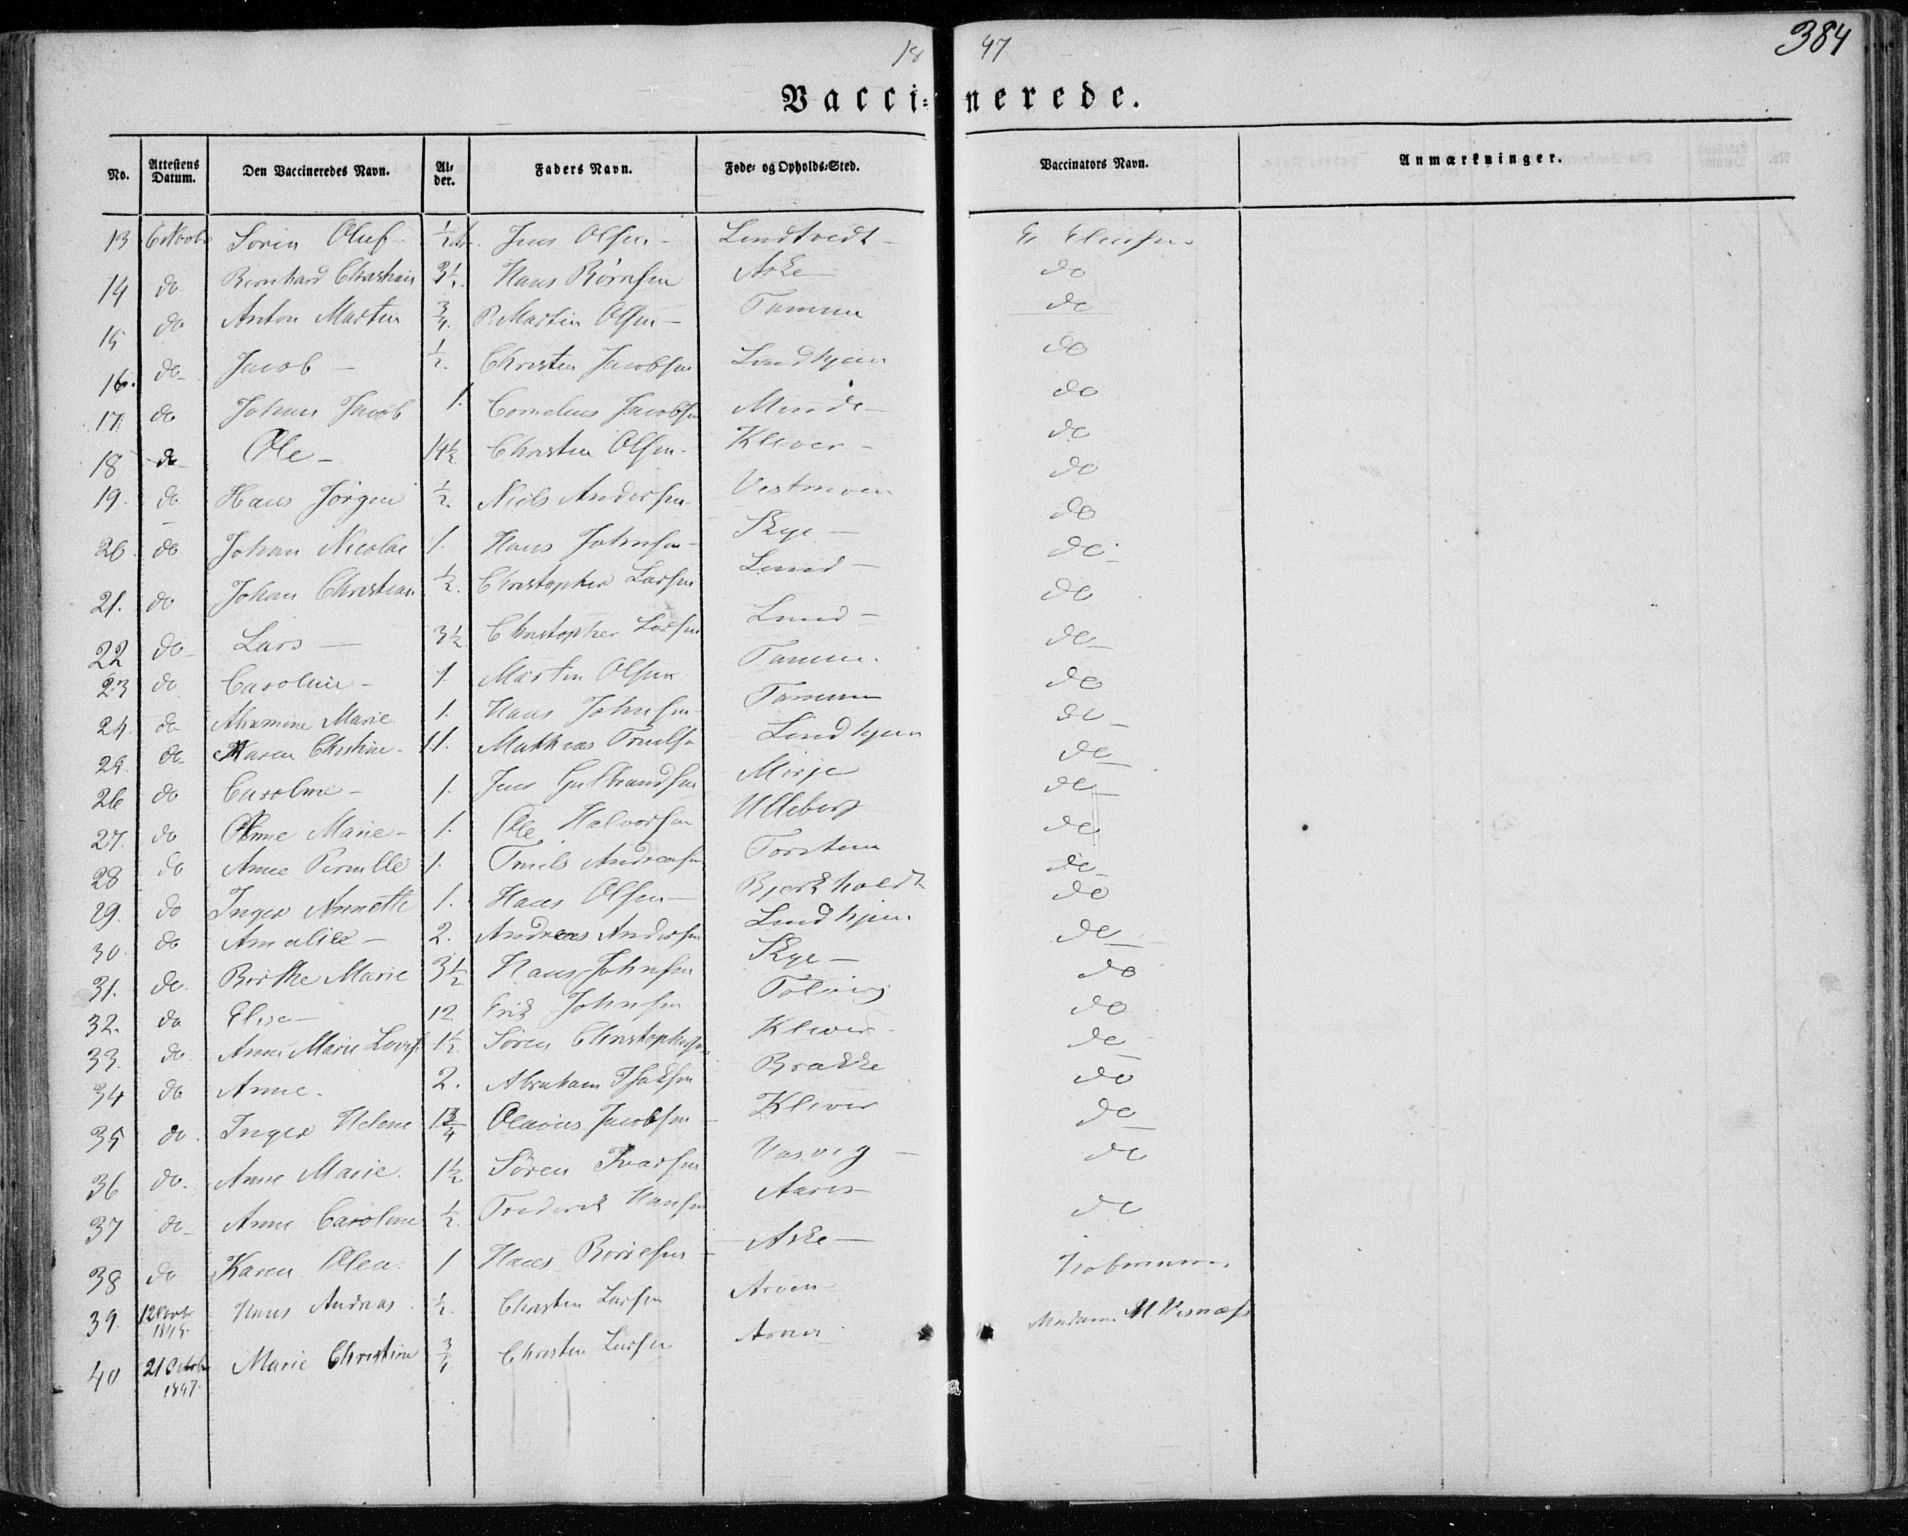 18 47
384
Vacci= nerede.
No. Attestens Datum. Den Vaccineredes Navn. Al- der. Faders Navn. Føde- og Opholds-Sted. Vaccinators Navn. Anmærkninger.
13 6 Novbr Soren Oluf. ½ Jens Olsen - Lundtvedt - E Elensen
14 do Bernhard Christian 3½. Hans Børresen Aske do
15 do Anton Martin ¾. P. Martin Olsen - Tammen do
16. do - Jacob - ½. Christen Jacobsen Lindhjem do
17 do Johan Jacob 1. Cornelius Jacobsen Minde - do
18 do Ole - 14½ Christen Olsen - Klever - do
19. do Hans Jørgen ½. Niels Andersen Vestmoen do
20. do Johan Nicolai 1. Hans Johnsen - Skye - do
21. do Johan Christian ½. Christopher Larsen Lund - do
22 do - Lars - 3½ Christopher Larsen Lund - do
23 do Caroline - 1. Martin Olsen Tammen do
24. do Abramine Marie 1. Hans Johnsen - Tammen do
25. do Karen Christine - 11. Mathias Truelsen Lindhjem do
26 do Caroline - 1. Jens Gulbrandsen Minje do
27. do Anne Marie - 1. Ole Halvorsen Ulleberg do
28 do Anne Pernille 1. Truels Andreasen Torstein do
29. do Inger Annette 1. Hans Olsen - Bjerkholdt do
30. do Amalie - 2. Andreas Andersen Lindhjem do
31. do. Birthe Marie 3½ Hans Johnsen Skye - do
32. do Elise - 12 Erik Johnsen do
33. do. Anne Marie Lovise 1½. Søren Christophersen Klever do
34 do Anne. 2. Abraham Isaksen Brække do
35 do. Inger Helene 1¾ Olavus Jacobsen Klever do
36 do. Anne Marie. 1½ Søren Ivarsen Vasvig - do
37 do - Anne Caroline ½. Frederik Hansen do
38 do Karen Olea. 1 Hans Børresen Aske - do
39. 12 1845. Hans Andreas. ½. Christen Larsen Arven
40 21 Octobr 1847. Marie Christine ¾ Christen Larsen Madam